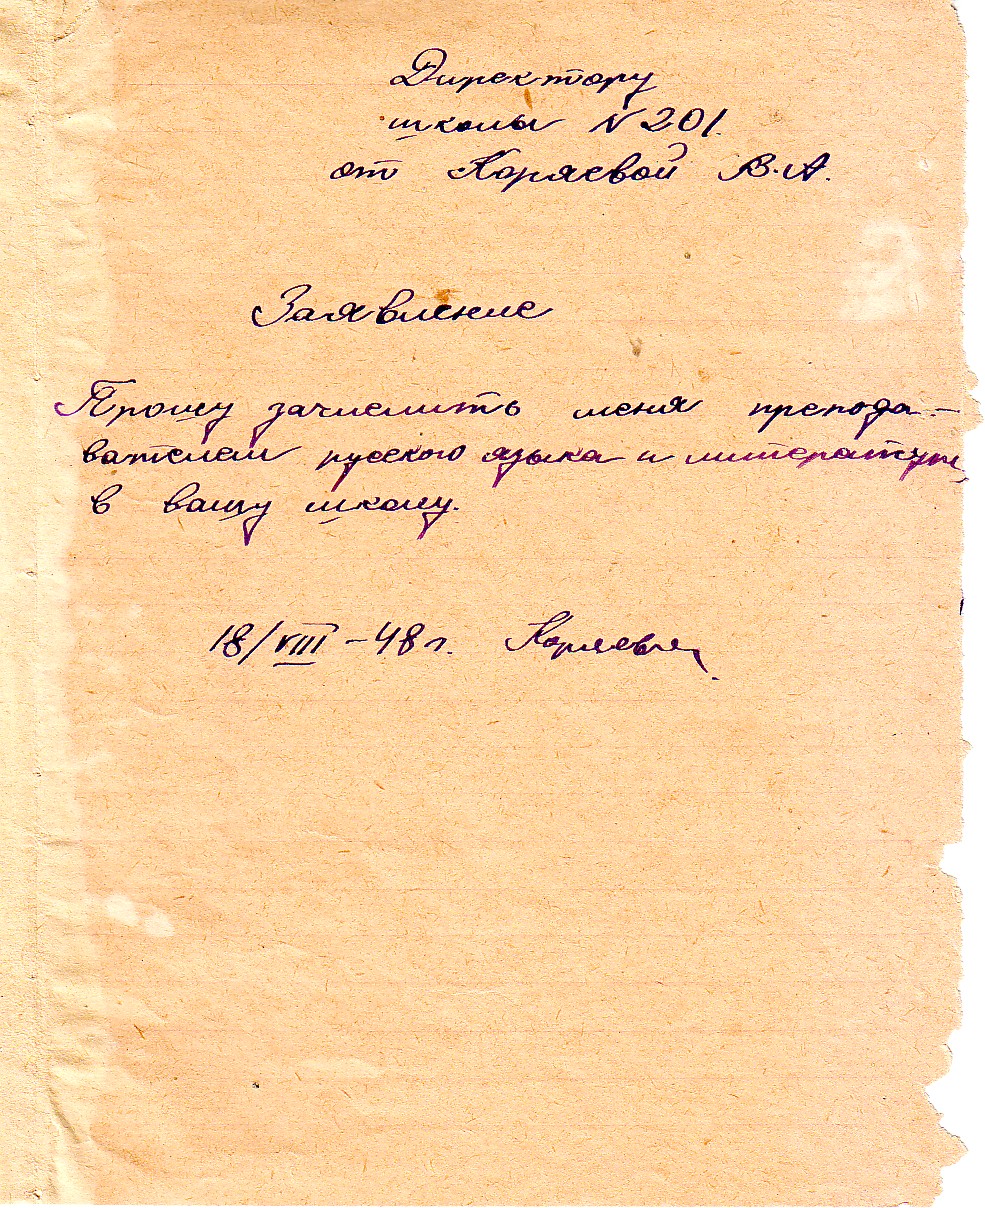 Директору
школы N 201.
от Каряевой В.А.
Заявление
Прошу зачислить меня препода-
вателем русского языка и литературы
в вашу школу.
18/VIII – 48 г. Каряева